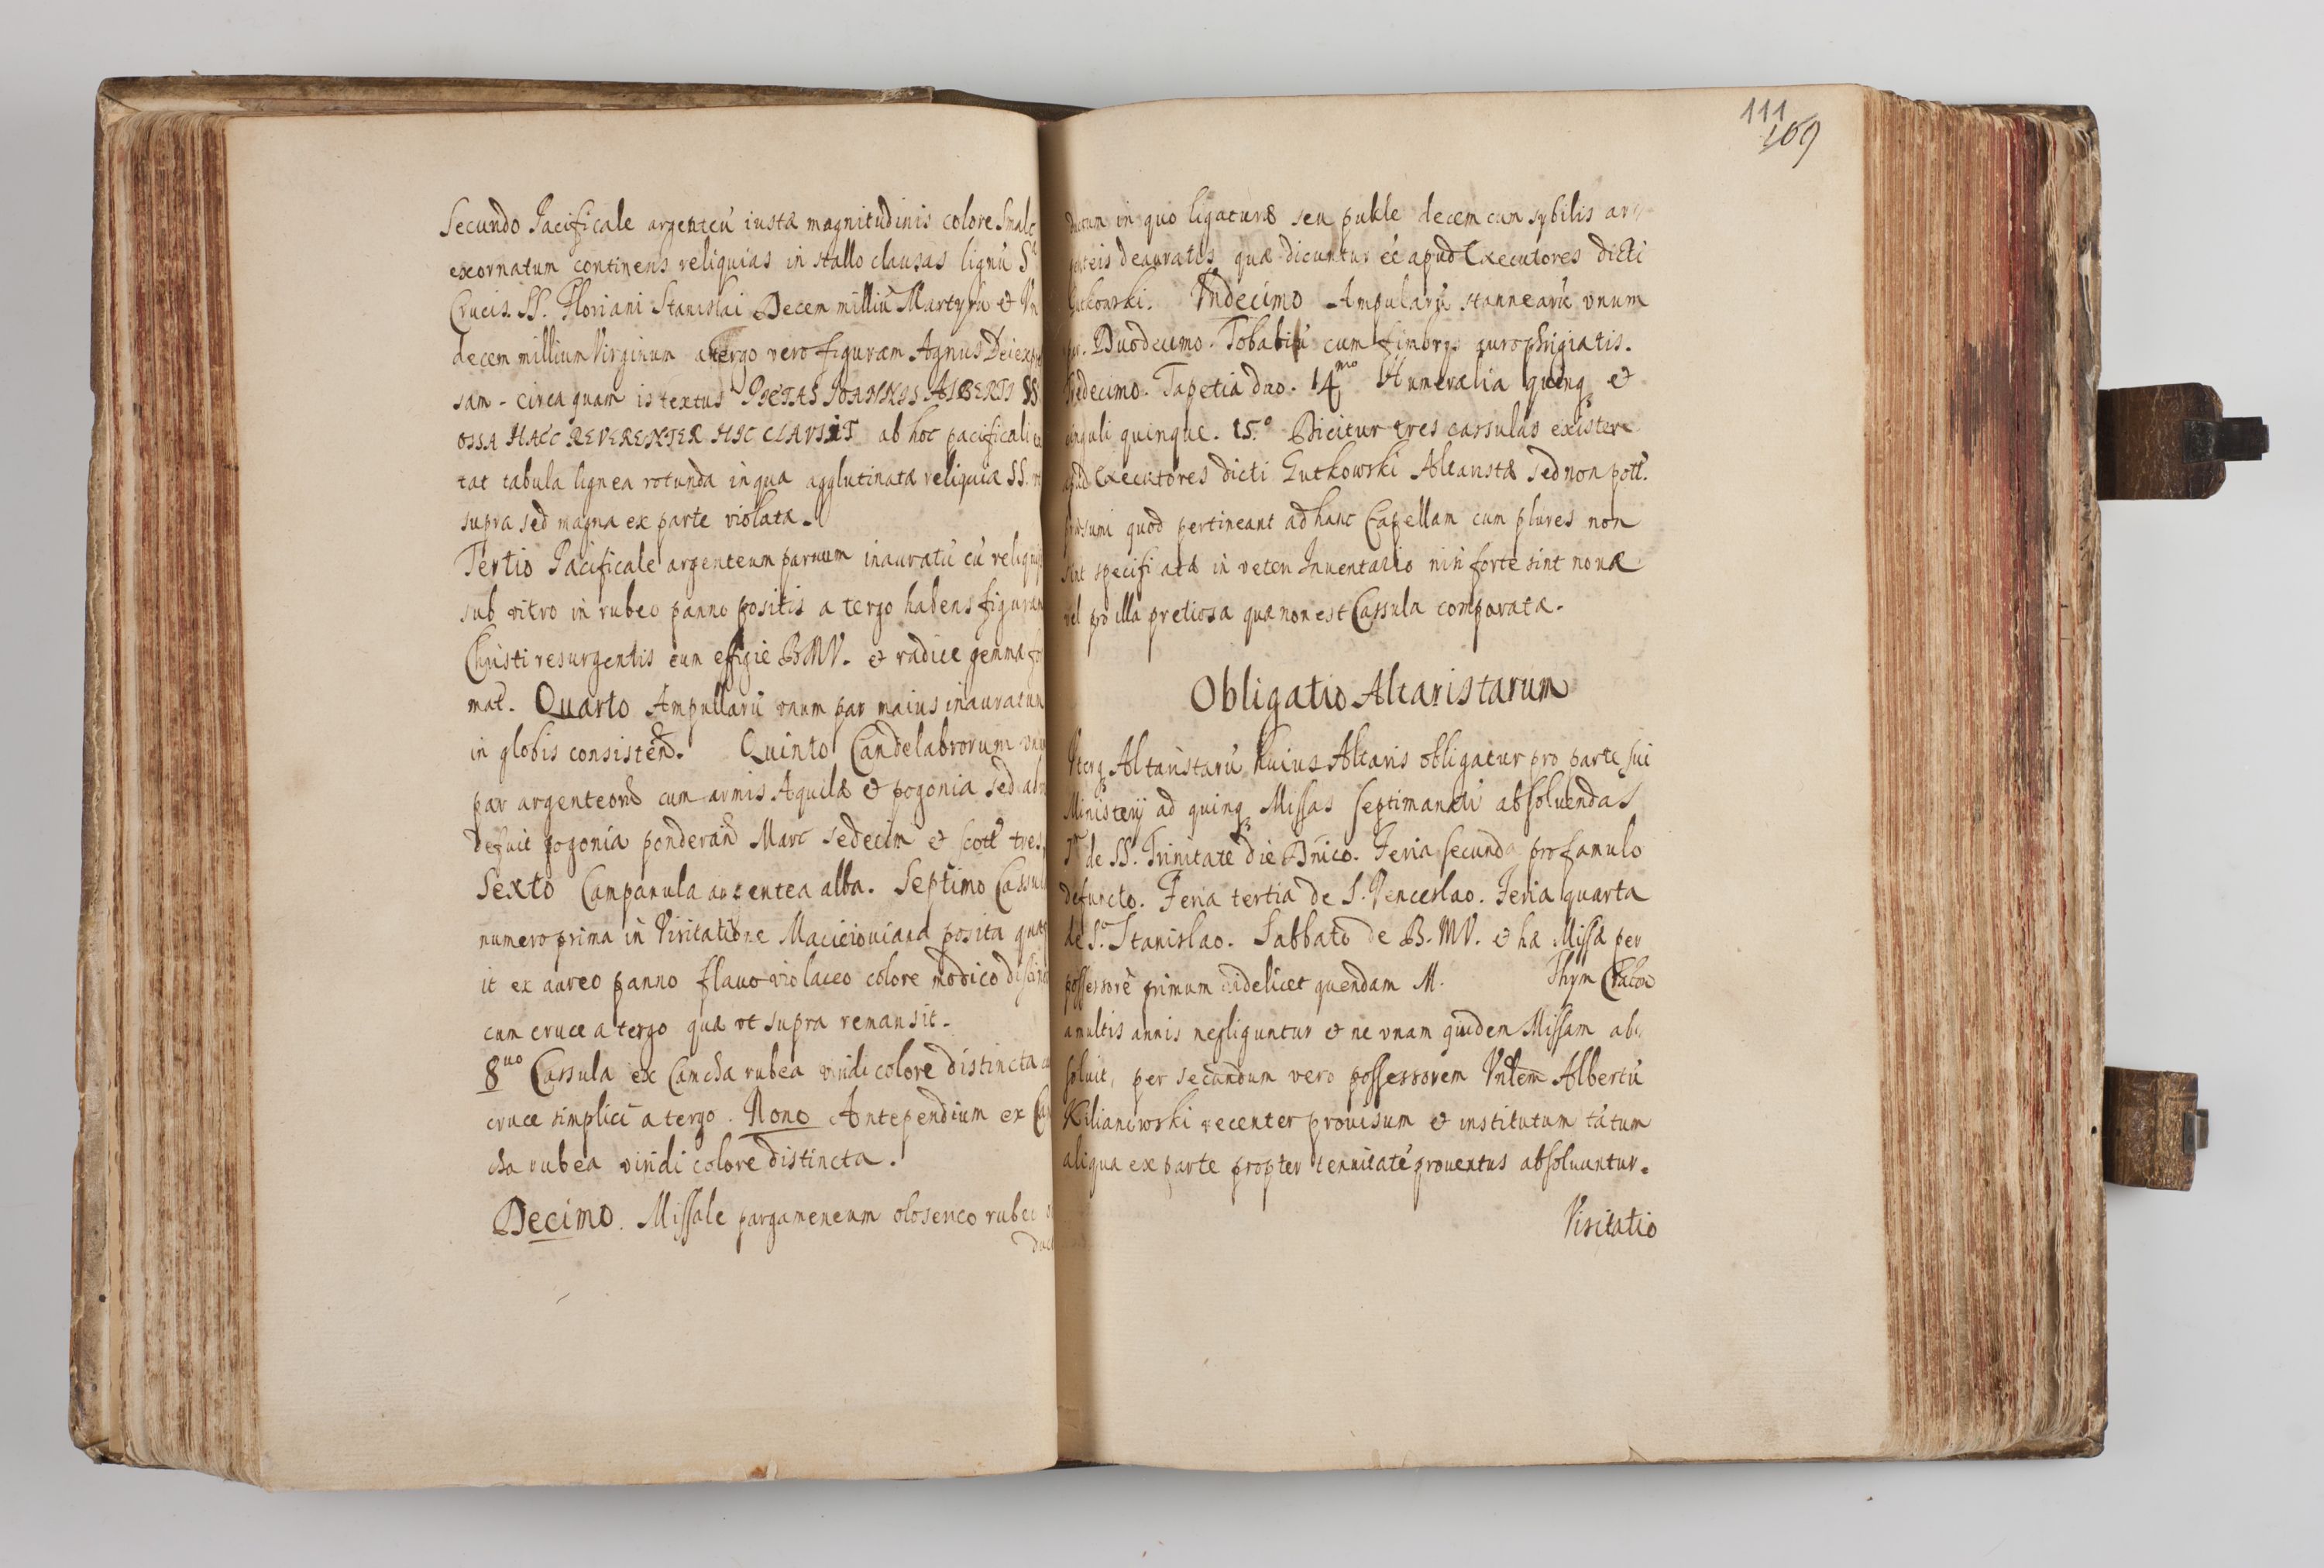 Secundo Pacificale argenteū iustæ magnitudinis colore Smalc
excornatum continens reliquias in stallo clausas lignū S
Crucis SS. Floriani Stanislai Decem milliū Martyrū et Vn
decem millium Virginum a tergo vero figuram Agnus Dei
sam - circa quam is textus PIETAS IOANNIS ALBERTI SS
OSSA HACC REVERENTER HIC CLAVSIT ab hoc pacificali
tat tabula lignea rotunda in qua agglutinatæ reliquiæ SS.
supra sed magna ex parte violata.
Tertio Pacificale argenteum paruum inauratū cū reliquijs
sub vitro in rubeo panno positis a tergo habens figuram
Christi resurgentis cum effigie BMV. et radice gemma
mat. Quarto Ampullarū vnum par maius inauratum
in globis consisteñ. Quinto Candelabrorum
par argenteorū cum armis Aquilæ et pogonia sed
defuit pogonia ponderañ Marc sedecim et scott tres
Sexto Campanula argentea alba. Septimo
numero prima in Visitatione Macieiouiana posita
it ex aureo panno flauo violaceo colore modico
cum cruce a tergo quæ vt supra remansit.
8uo Cassula ex Camcha rubea viridi colore distincta
cruce simplici a tergo. Nono Antependium ex
cha rubea viridi colore distincta.
Decimo. Missale pargameneum olosenco rubeo
duc
111
109
ductum in quo ligaturæ seu puklé decem cum sybilis ar
genteis deauratis quæ dicuntur eē apud Executores dicti
Gutkowski. Vndecimo Ampularū stannearū vnum
par. Duodecimo. Tobaliū cum fimbrys aurophrigiatis.
Tredecimo. Tapetia duo. 14mo Humeralia quinq et
cinguli quinque. 15.o Dicitur tres cassulas existere
apud Executores dicti Gutkowski Altaristæ sed non pott.
præsumi quod pertineant ad hanc Capellam cum plures non
sint specificatæ in veteri Inuentario nisi forte sint nouæ
vel pro illa pretiosa quæ non est Cassula comparatæ.
Obligatio Altaristarum
Vterq Altaristarū huius Altaris obligatur pro parte sui
Ministerij ad quinq Missas septimanati absoluendas
de SS. Trinitate die Dn̄ico. Feria secunda pro famulo
defuncto. Feria tertia de S. Venceslao. Feria quarta
de S. Stanislao. Sabbato de B. MV. et hæ Missæ per
possessorē primum videlicet quendam M. Thym
a multis annis negliguntur et ne vnam quidem Missam ab
soluit, per secundum vero possessorem Vnlem Albertū
Kilianowski recenter prouisum et institutum tātum
aliqua ex parte propter tenuitatē prouentus absoluantur.
Visitatio